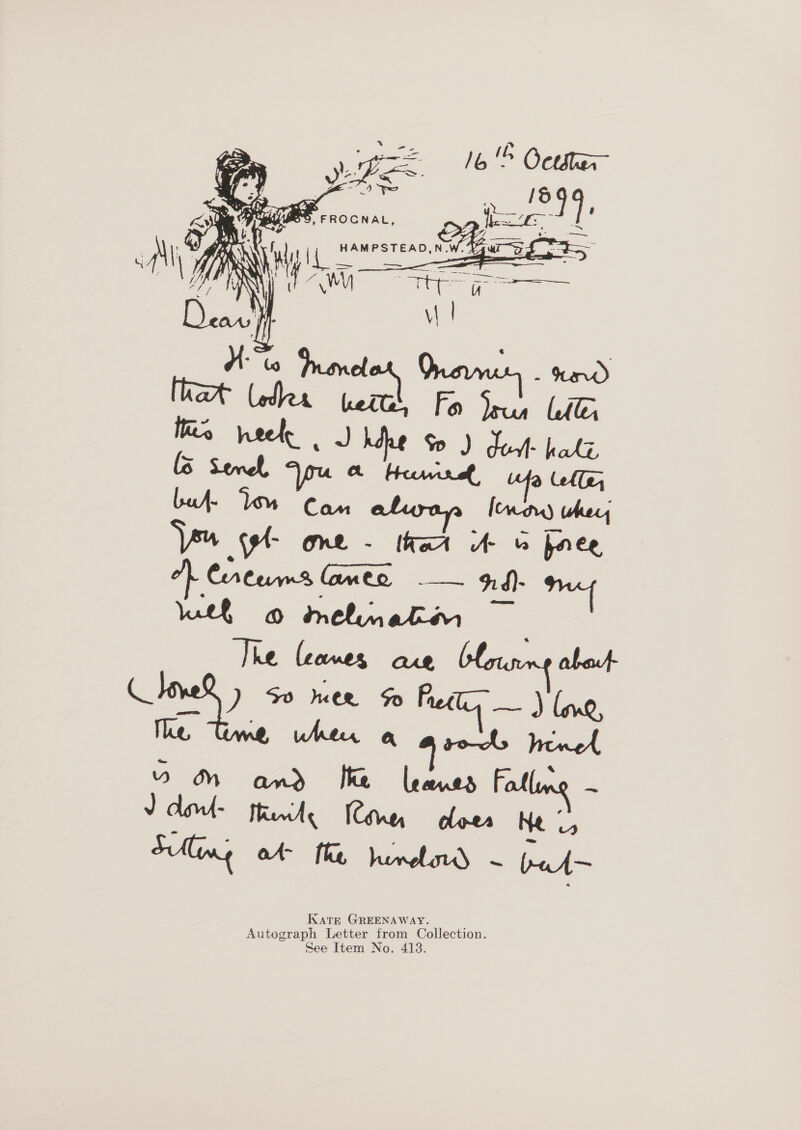 16th October
1899,
39, FROGNAL,
HAMPSTEAD, N.W.
Dear
It is Monday Morning - now
that looks better for your letter
this week, I hope so I Just hate
to send you a Hurried up letter
but you can always know when
you get one - that it is force
of circumstance — not my
will or inclination
The leaves are blowing about
(lovely) so nice so Pretty — I love
the time when a good wind
is on and the leaves Falling -
I dont think Rover does He is
Sitting at the window - but -
KATE GREENAWAY.
Autograph Letter from Collection.
See Item No. 413.